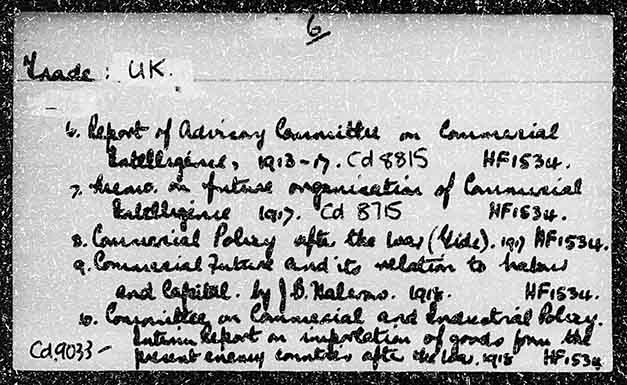 6
Trade: UK.
6. Report of Advisory Committee on Commercial
Intelligence, 1913-17. Cd 8815 HF1534.
7. Memo. on future organisation of Commercial
Intelligence 1917. Cd 8715 HF1534.
8. Commercial Policy after the war (Gide). 1917 HF1534.
9. Commercial Future and its relation to Labour
and Capital. by J.B. 1918. HF1534.
10. Committee on Commercial and Industrial Policy.
Interim Report on importation of goods from the
Cd.9033- present enemy countries after the War. 1918 HF1534